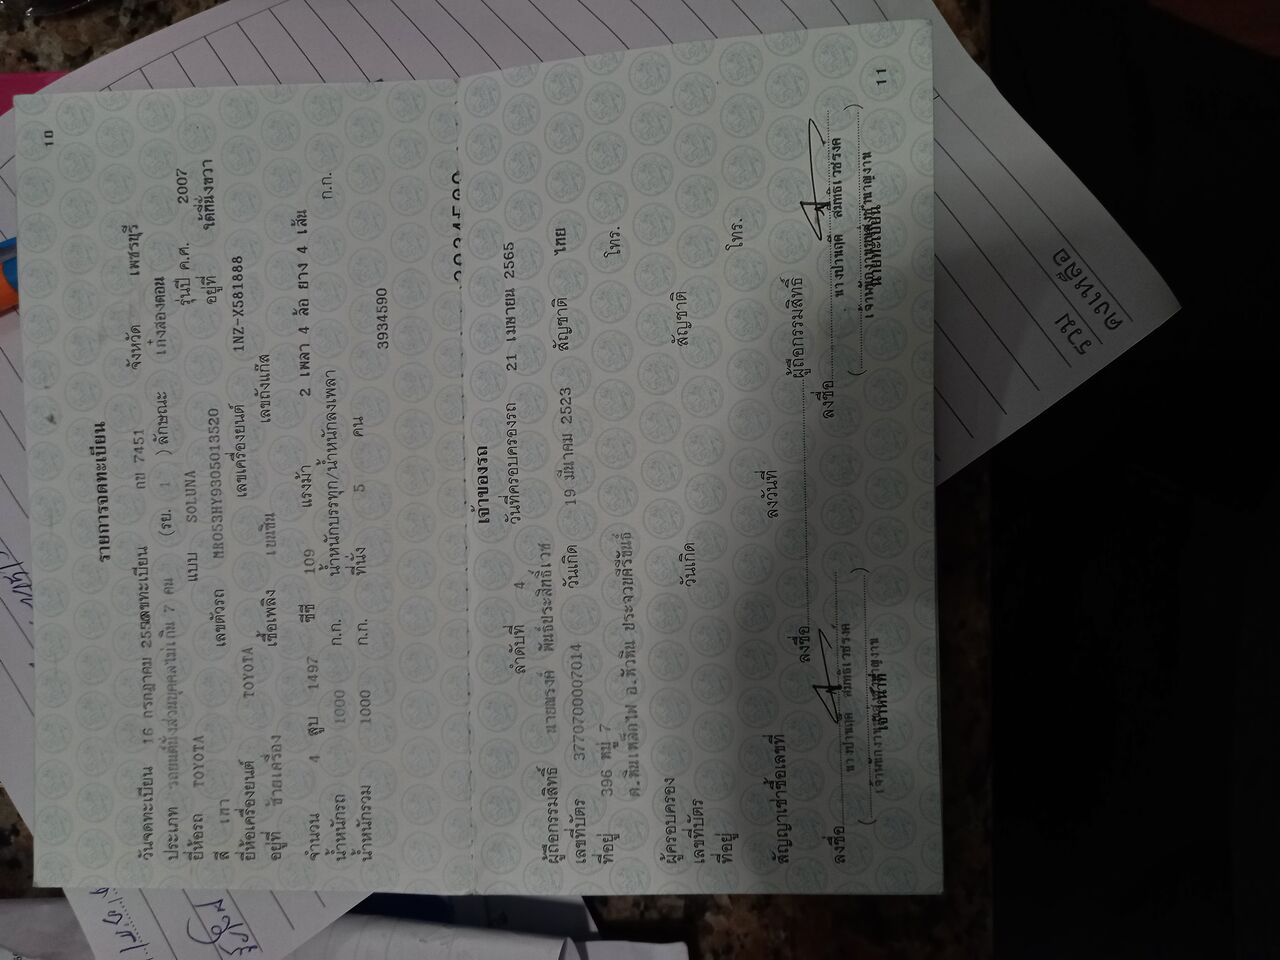 10
รายการจดทะเบียน
วันจดทะเบียน 16 กรกฎาคม เลขทะเบียน กข 7451 จังหวัด เพชรบุรี
ประเภท รถยนต์นั่งส่วนบุคคลไม่เกิน 7 คน (รย. 1 ) ลักษณะ เก๋งสองตอน
ยี่ห้อรถ TOYOTA แบบ SOLUNA รุ่นปี ค.ศ. 2007
สี เทา เลขตัวรถ MR053HY9305013520 อยู่ที่ ใต้ที่นั่งขวา
ยี่ห้อเครื่องยนต์ TOYOTA เลขเครื่องยนต์ 1NZ-X581888
อยู่ที่ ซ้ายเครื่อง เชื้อเพลิง เบนซิน เลขถังแก๊ส
จำนวน 4 สูบ 1497 ซีซี 109 แรงม้า 2 เพลา 4 ล้อ ยาง 4 เส้น
น้ำหนักรถ 1000 ก.ก. น้ำหนักบรรทุก/น้ำหนักลงเพลา ก.ก.
น้ำหนักรวม 1000 ก.ก. ที่นั่ง 5 คน 3934590
เจ้าของรถ
ลำดับที่ 4 วันที่ครอบครองรถ 21 เมษายน 2565
ผู้ถือกรรมสิทธิ์ นายพรงค์ พันธ์ประสิทธิ์เวช
เลขที่บัตร 3770700007014 วันเกิด 19 มีนาคม 2523 สัญชาติ ไทย
ที่อยู่ 396 หมู่ 7 โทร.
ต.หินเหล็กไฟ อ.หัวหิน ประจวบคีรีขันธ์
ผู้ครอบครอง
เลขที่บัตร วันเกิด สัญชาติ
ที่อยู่ โทร.
สัญญาเช่าซื้อเลขที่ ลงวันที่
ลงชื่อ ผู้ถือกรรมสิทธิ์
ลงชื่อ ลงชื่อ
นายทะเบียน
11
รวม
คงเหลือ